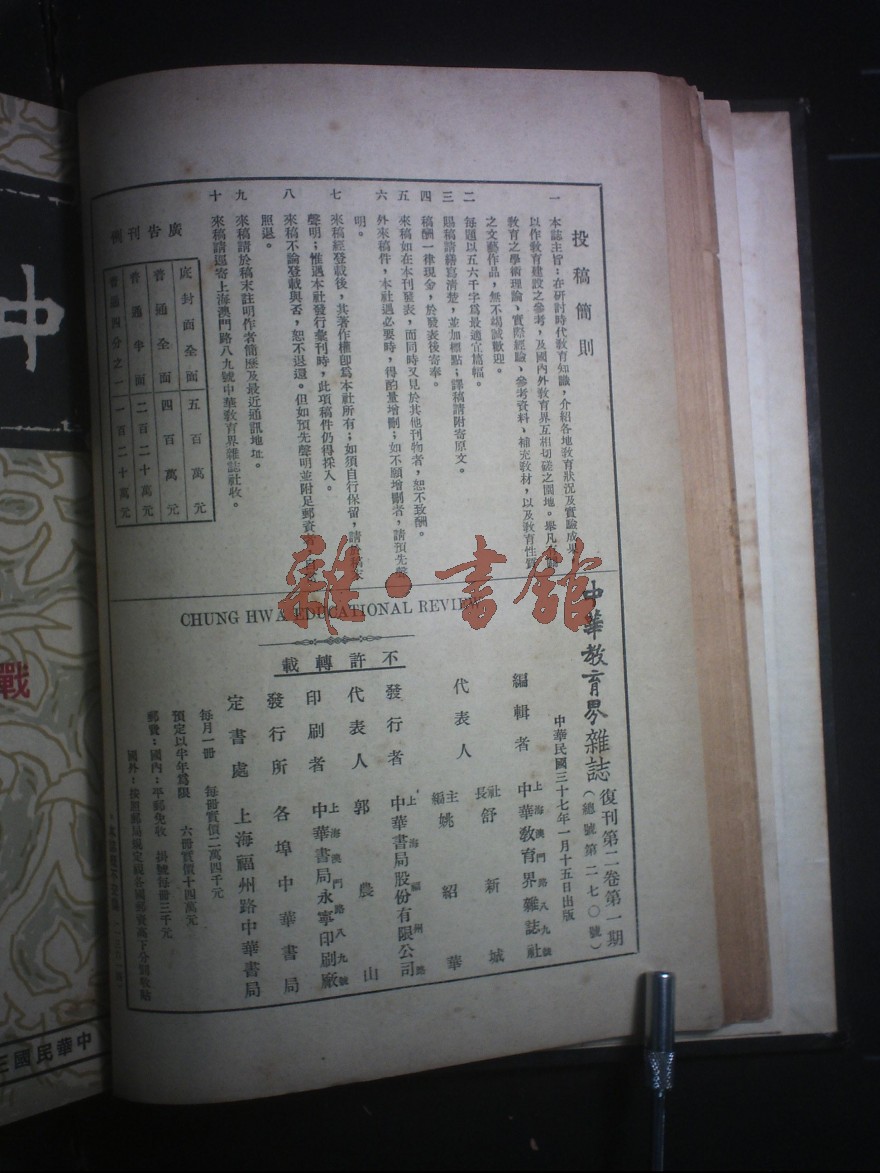 投稿簡則
一 本誌主旨：在研討時代教育知識，介紹各地教育狀況及實驗成果，
以作教育建設之參考，及國內外教育界互相切磋之園地。舉凡有關
教育之學術理論，實際經驗，參考資料，補充教材，以及教育性質
之文藝作品，無不竭誠歡迎。
二 每題以五六千字爲最適宜篇幅。
三 賜稿請繕寫清楚，並加標點；譯稿請附寄原文。
四 稿酬一律現金，於發表後寄奉。
五 來稿如在本刊發表，而同時又見於其他刊物者，恕不致酬。
六 外來稿件，本社遇必要時，得酌量增刪；如不願增刪者，請預先聲
明。
七 來稿經登載後，其著作權卽爲本社所有；如須自行保留，請於
聲明；惟遇本社發行彙刊時，此項稿件仍得採入。
八 來稿不論登載與否，恕不退還。但如預先聲明並附足郵資
照退。
九 來稿請於稿末註明作者簡歷及最近通訊地址。
十 來稿請逕寄上海澳門路八九號中華敎育界雜誌社收。
廣告刊例
底封面全面 五百萬元
普通全面 四百萬元
普通半面 二百二十萬元
普通四分之一 一百二十萬元
雜·書館
CHUNG HWA EDUCATIONAL REVIEW
中華教育界雜誌 復刊第二卷第一期
（總號第二七〇號）
中華民國三十七年一月十五日出版
編輯者 上海澳門路八九號 中華敎育界雜誌社
代表人 社長 舒新城
主編 姚紹華
發行者 上海福州路 中華書局股份有限公司
代表人 郭農山
印刷者 上海澳門路八九號 中華書局永寧印刷廠
發行所 各埠中華書局
定書處 上海福州路中華書局
不許轉載
每月一冊 每冊實價二萬四千元
預定以半年爲限 六冊實價十四萬元
郵費：國內：平郵免收 掛號每冊三千元
國外：按照郵局規定視各國郵資高下分別收給
中
戰
中華民國三